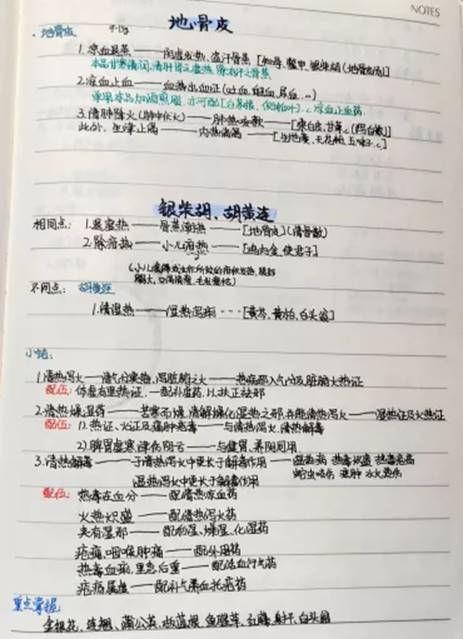 NOTES
地骨皮
·地骨皮
1.凉血退蒸——阴虚发热、盗汗骨蒸[知母、鳖甲、银柴胡(地骨皮汤)]
本品甘寒清润,清肝肾之虚热,除有汗之骨蒸
2.凉血止血——血热出血证(吐血、衄血、尿血…)
单用本品加酒煎服,亦可配[白茅根、侧柏叶]凉血止血药
3.清肺降火(肺中伏火)——肺热咳嗽——[桑白皮、甘草](泻白散)
此外,生津止渴——内热消渴——[生地黄、天花粉、五味子]
银柴胡、胡黄连
相同点:1.退虚热——骨蒸潮热——[地骨皮](清骨散)
2.除疳热——小儿疳热——[鸡内金、使君子]
不同点:胡黄连
1.清湿热——湿热泻痢---[黄芩、黄柏、白头翁]
小结:
1.清热泻火——清气分实热、泻脏腑之火——热病邪入气分及脏腑火热证
配伍:体虚有里热证,一配补虚药,以扶正祛邪
2.清热燥湿药——苦寒而燥,清解燥化湿热之邪,并能清热泻火——湿热证及火热证
配伍:1).热证、火证及痈肿病毒——与清热泻火、清热解毒
2)脾胃虚寒、津伤阴亏——与健胃、养阴同用
3.清热解毒——于清热泻火中更长于解毒作用——
泻火清热中更长于解毒作用
配伍:热毒在血分——配清热凉血药
火热炽盛——配清热泻火药
夹有湿邪——配利湿、燥湿、化湿药
疮痈、咽喉肿痛——配外用药
热毒血痢、里急后重——配活血行气药
疮疡属虚——配补气养血托疮药
重点掌握
金银花、连翘、蒲公英、板蓝根、鱼腥草、射干、白头翁